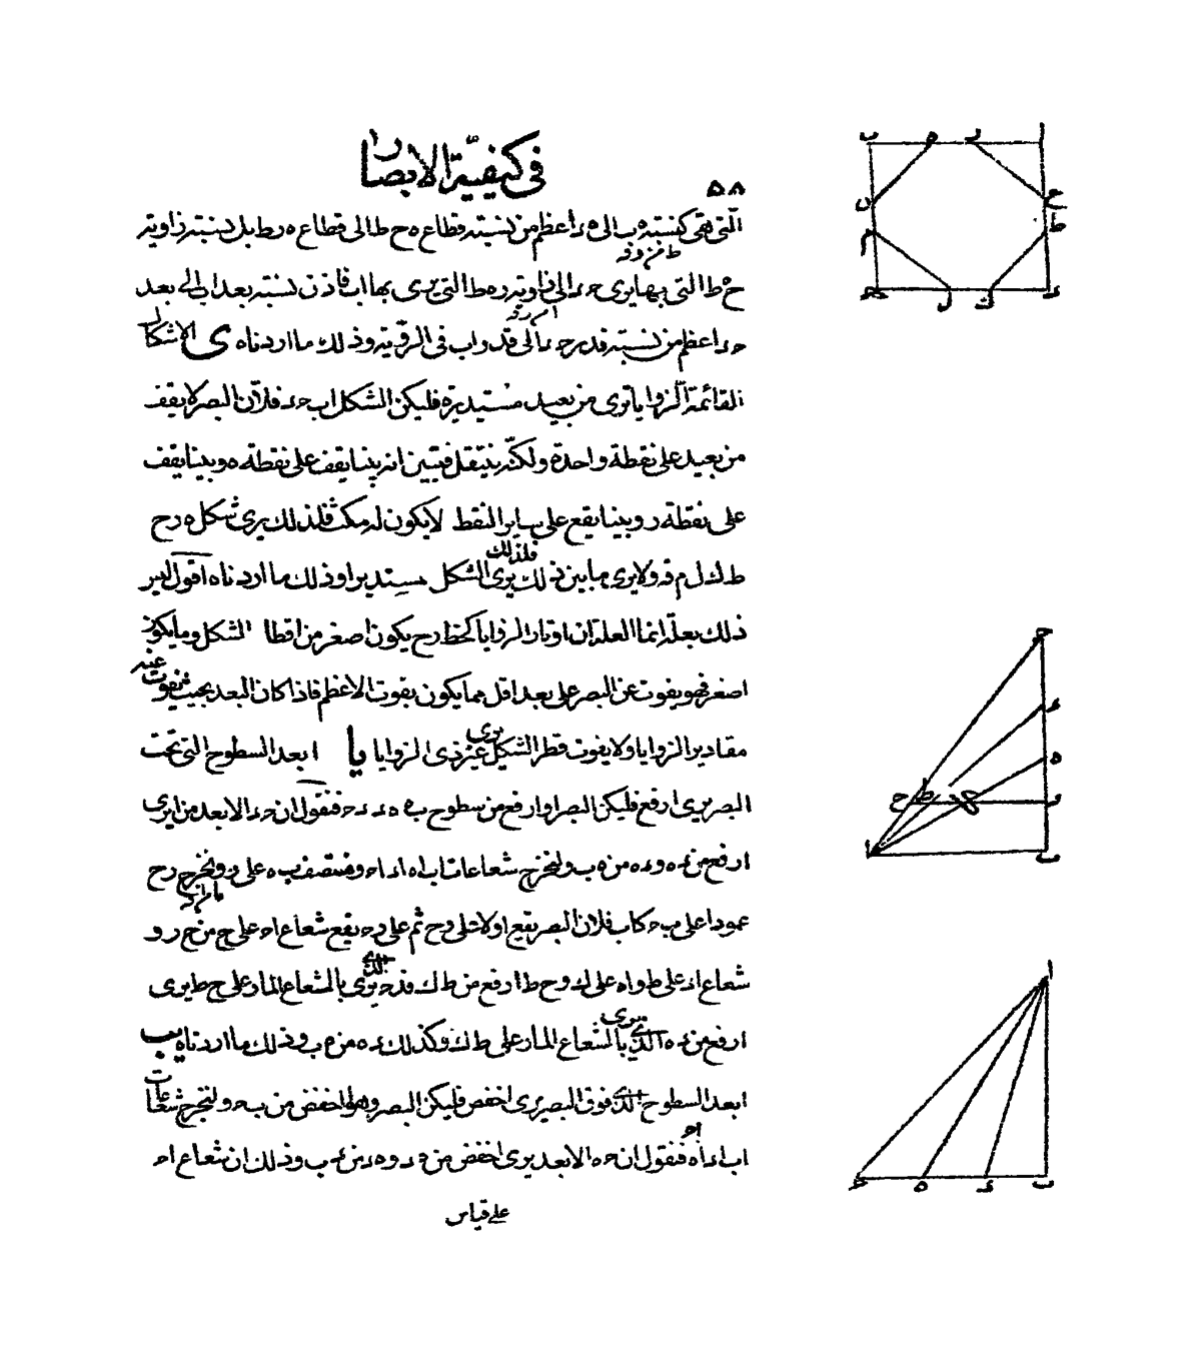 في كيفية الابصار
٥٨
الّتي هي كنسبة ه ب الى ه ء اعظم من نسبة قطاع ه ح ط الى قطاع ه ر ط بل نسبة زاوية
ح ه ط التي بها يرى ح ء الى زاوية ر ه ط التي يرى بها اب فاذن نسبة بعد اب الى بعد
ح ء اعظم من نسبة قدر ح ء الى قدر اب في الرؤية وذلك ما اردناه ى الاشكال
القائمة الزوايا ترى من بعيد مستديرة فليكن الشكل اب ح ء فلان البصر لا يقف
من بعيد على نقطة واحدة ولكنّه ينتقل فتبين انه بينا يقف على نقطة ه وبينا يقف
على نقطة ر وبينا يقع على ساير النقط لا يكون له مكث فلذلك يرى شكل ه ر ح
ط ك ل م ن ولا يرى ما بين ذلك فلذلك يرى الشكل مستديرا وذلك ما اردناه اقول ليس
ذلك بعلّة انما العلة ان اوتار الزوايا كخط ر ح يكون اصغر من اقطار الشكل وما يكون
اصغر فهو يفوت عن البصر على بعد اقل مما يكون يفوت الاعظم فاذا كان البعد بحيث يفوت عنه
مقادير الزوايا ولا يفوت قطر الشكل يرى غير ذى الزوايا يا ابعد السطوح التي تحت
البصر يرى ارفع فليكن البصر ا وارفع من سطوح ب ه ه ء ء ح فنقول ان ح ء الابعد من ا يرى
ارفع من ء ه و ء ه من ه ب ولنخرج شعاعات اب اه اء اح وننصف ب ه على ر ونخرج ر ح
عمودا على ب ح كاب فلان البصر يقع اولا على ر ح ثم على ر ح يقع شعاع اح على ح من ح ر و
شعاع اء على ط و اه على ك و ح ط ارفع من ط ك فء ح الذي يرى بالشعاع المار على ح ط يرى
ارفع من ء ه الذي يرى بالشعاع المار على ط ك وكذلك ء ه من ه ب وذلك ما اردناه يب
ابعد السطوح الذي فوق البصر يرى اخفض فليكن البصر ا وهو اخفض من ب ح ولنخرج شعاعات
اب اء اه اح فنقول ان ح ه الابعد يرى اخفض من ه ء و ه ء من ء ب وذلك ان شعاع اح
على قياس
ب ه ر ا
ن ح
م ط
ح ل ك ء
ح
ء
ه
ح ط ك ر
ا ب
ا
ح ه ء ب